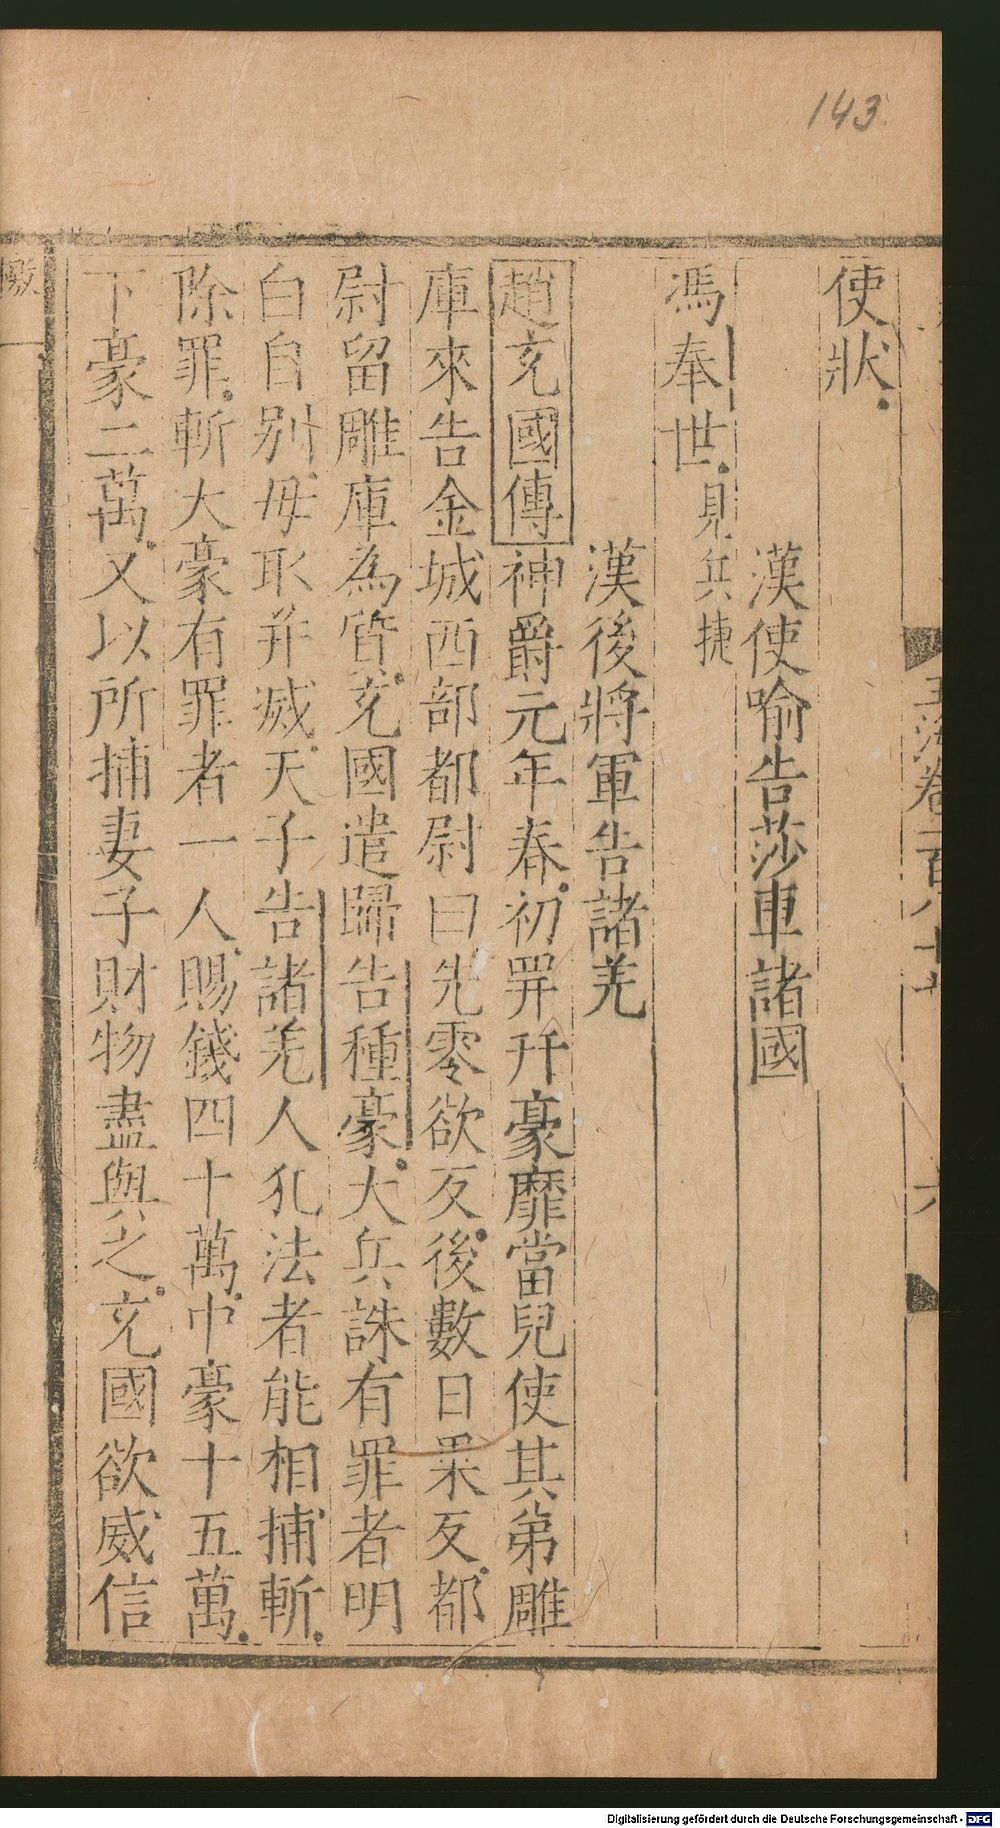 143
使狀
漢使喻告莎車諸國
馮奉世見兵捷
漢後將軍告諸羌
趙充國傳神爵元年春初罕幵豪靡當兒使其弟雕
庫來告金城西部都尉曰先零欲反後數日果反都
尉留雕庫為質充國遣歸告種豪大兵誅有罪者明
白自别毋取并滅天子告諸羌人犯法者能相捕斬
除罪斬大豪有罪者一人賜錢四十萬中豪十五萬
下豪二萬又以所捕妻子財物盡與之充國欲威信
玉海卷一百八十七
六
Digitalisierung gefördert durch die Deutsche Forschungsgemeinschaft - DFG